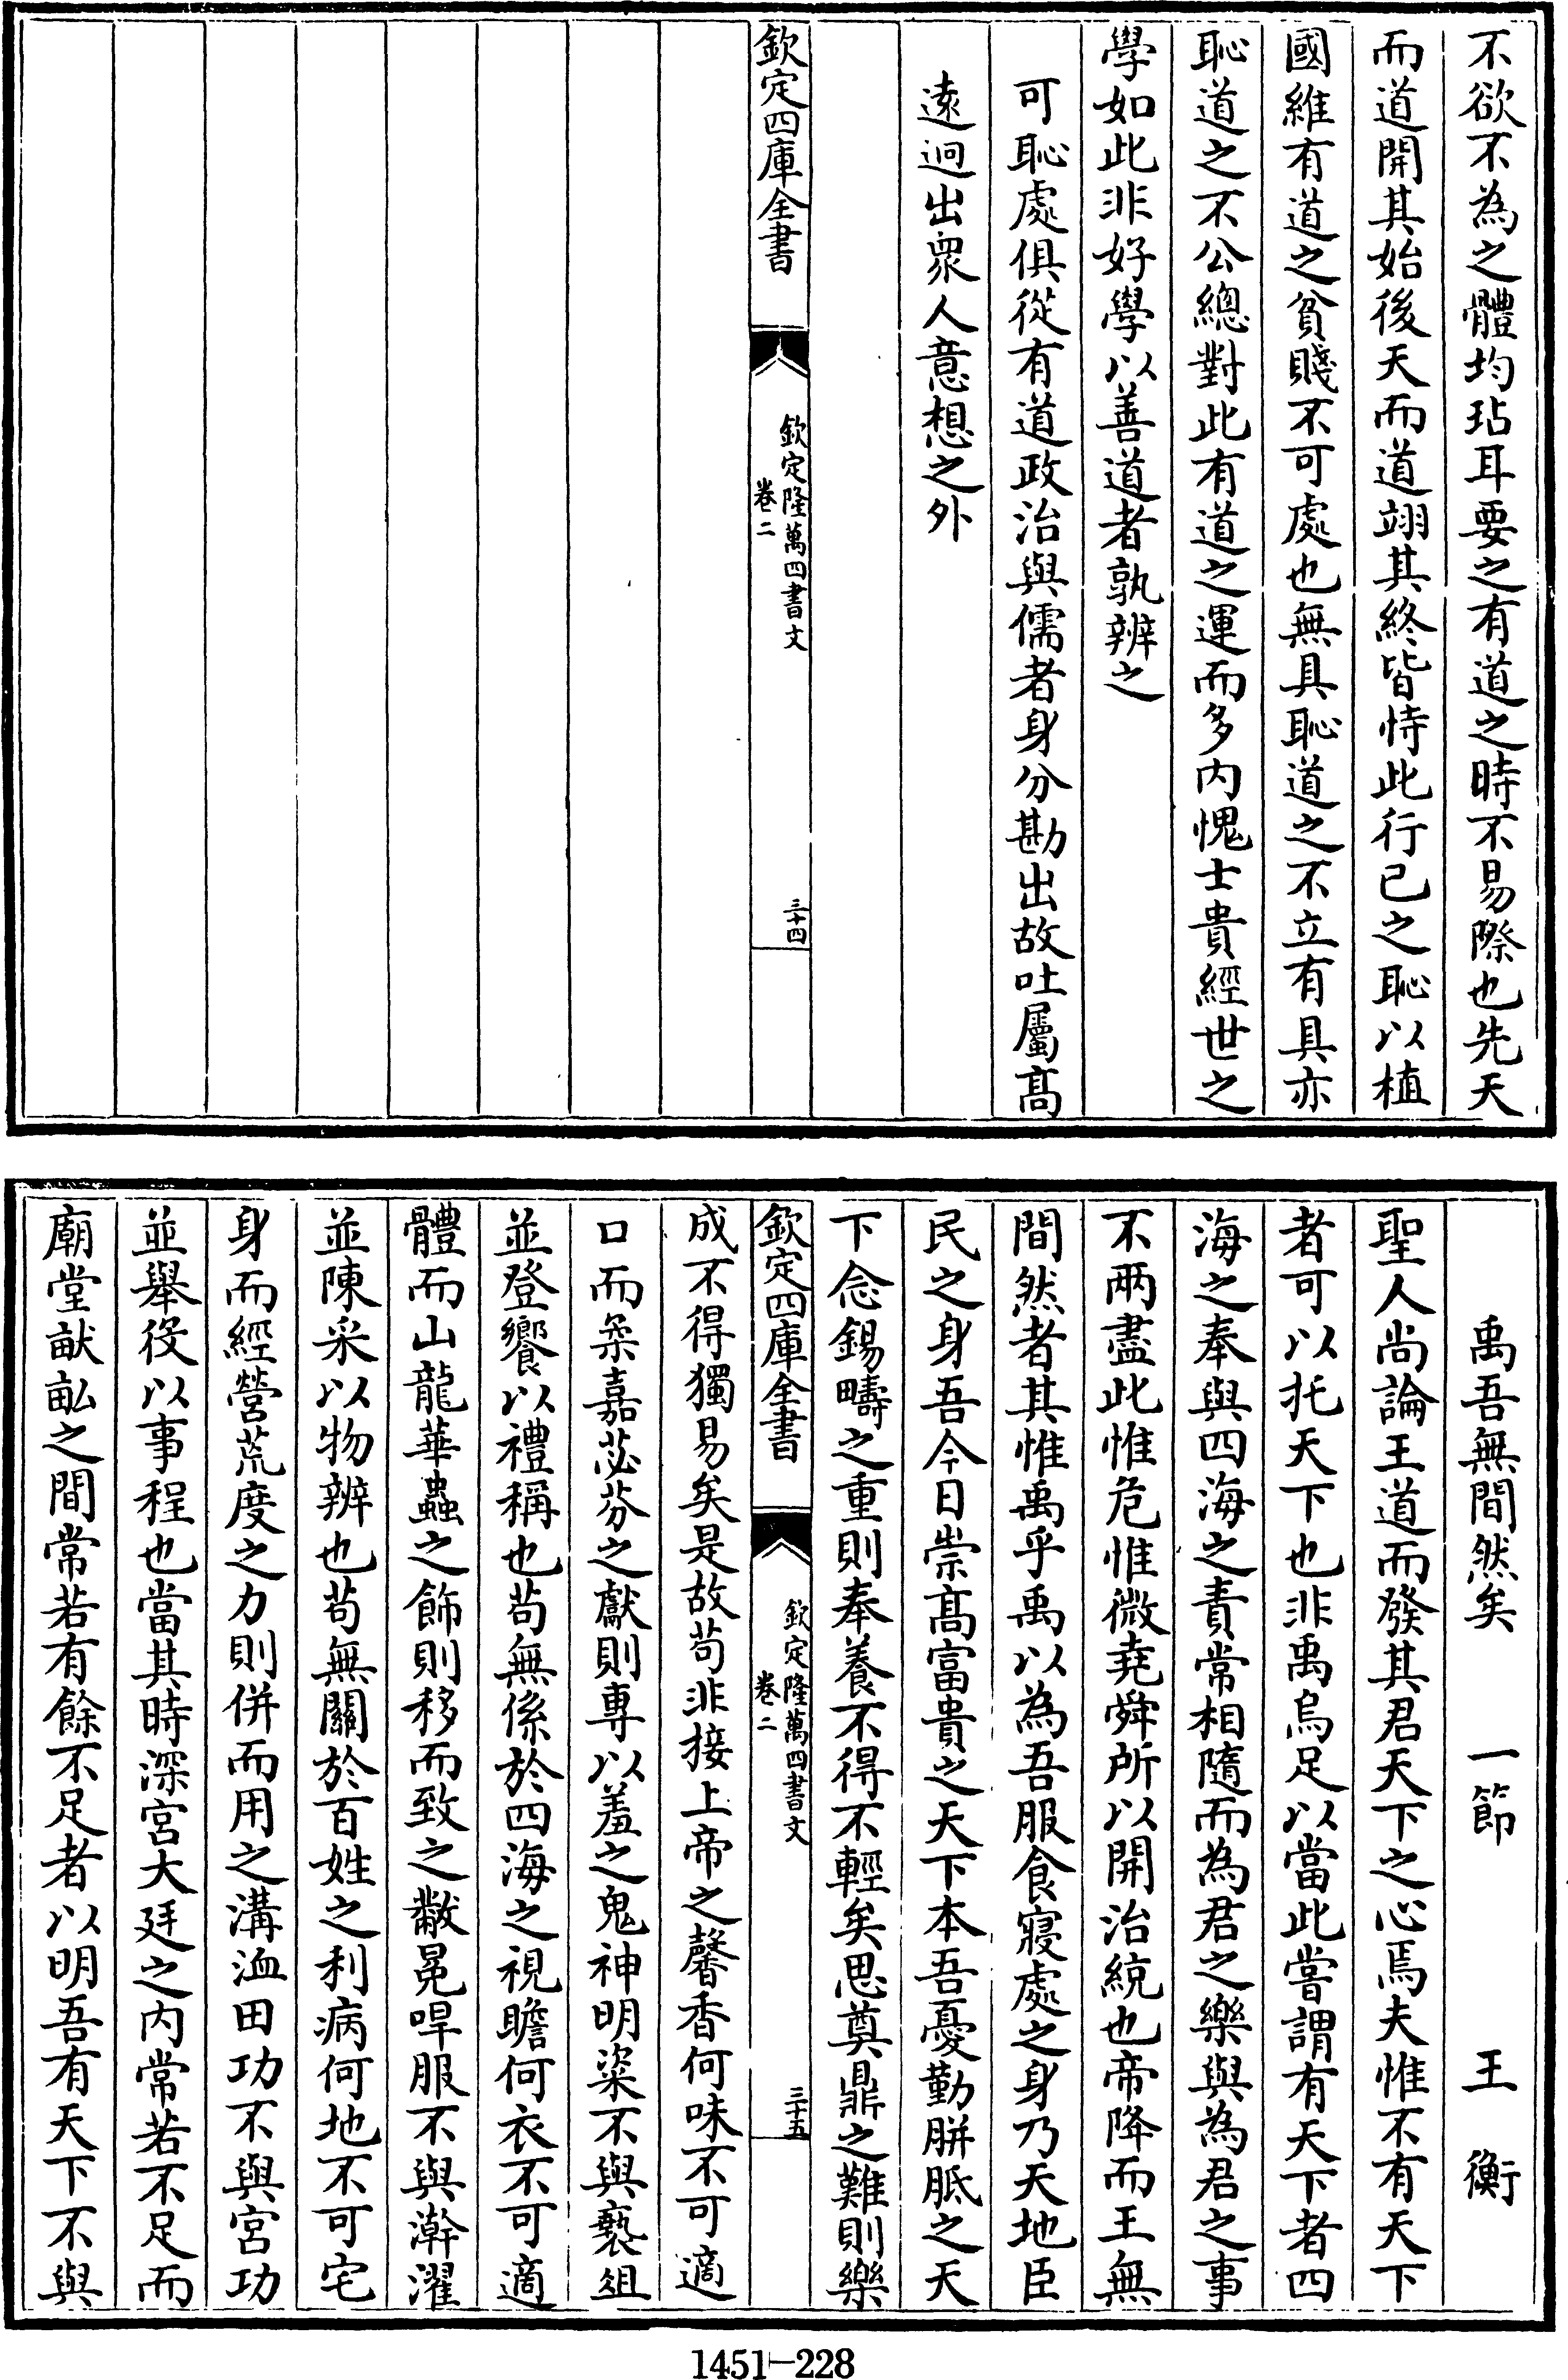 不欲不為之體均玷耳要之有道之時不易際也先天
而道開其始後天而道翊其終皆恃此行已之恥以植
國維有道之貧賤不可處也無具恥道之不立有具亦
恥道之不公總對此有道之運而多内愧士貴經世之
學如此非好學以善道者孰辨之
可恥處俱從有道政治與儒者身分勘出故吐屬髙
遠迥出衆人意想之外
欽定四庫全書
欽定隆萬四書文
卷二
三十四
禹吾無間然矣　一節　王衡
聖人尚論王道而發其君天下之心焉夫惟不有天下
者可以托天下也非禹烏足以當此嘗謂有天下者四
海之奉與四海之責常相隨而為君之樂與為君之事
不兩盡此惟危惟微堯舜所以開治統也帝降而王無
間然者其惟禹乎禹以為吾服食寢處之身乃天地臣
民之身吾今日崇髙富貴之天下本吾憂勤胼胝之天
下念錫疇之重則奉養不得不輕矣思奠鼎之難則樂
欽定四庫全書
欽定隆萬四書文
卷二
三十五
成不得獨易矣是故茍非接上帝之馨香何味不可適
口而柔嘉苾芬之獻則專以羞之鬼神明粢不與褻俎
並登饗以禮稱也茍無係於四海之視瞻何衣不可適
體而山龍華蟲之飾則移而致之黻冕嘽服不與澣濯
並陳采以物辨也茍無闗於百姓之利病何地不可宅
身而經營荒度之力則併而用之溝洫田功不與宮功
並舉役以事程也當其時深宮大廷之内常若不足而
廟堂畎畝之間常若有餘不足者以明吾有天下不與
1451—228